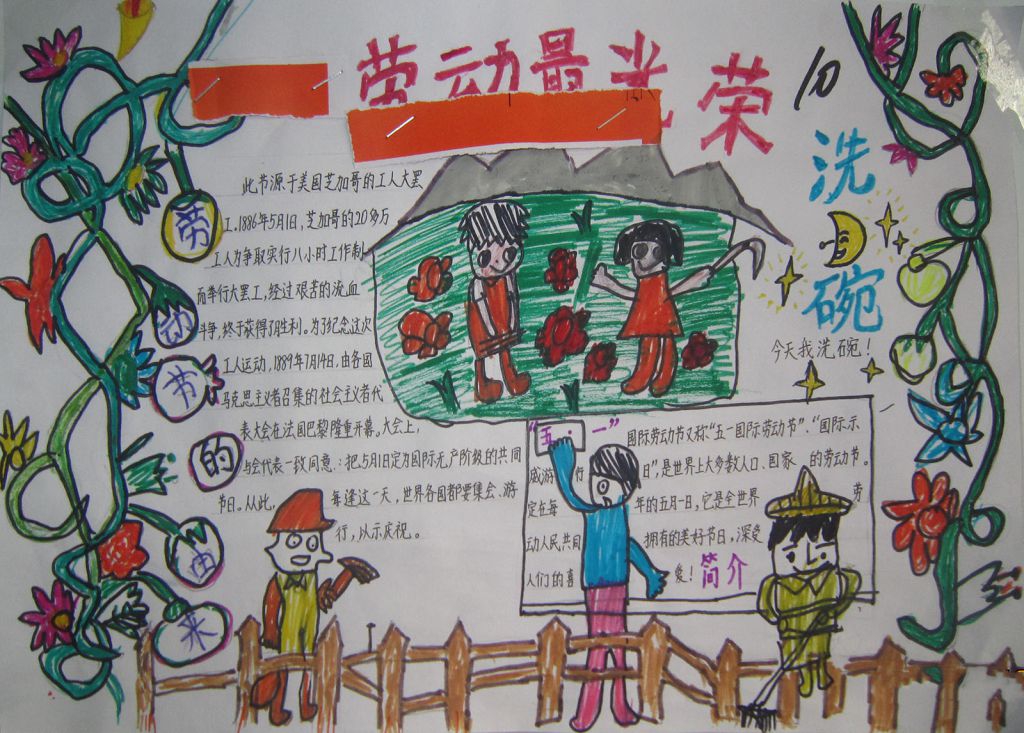 劳动最光荣
劳动节的由来
此节源于美国芝加哥的工人大罢
工.1886年5月1日,芝加哥的20多万
工人为争取实行八小时工作制
而举行大罢工,经过艰苦的流血
斗争,终于获得了胜利。为了纪念这次
工人运动,1889年7月14日,由各国
马克思主义者召集的社会主义者代
表大会在法国巴黎隆重开幕。大会上,
与会代表一致同意:把5月1日定为国际无产阶级的共同
节日。从此, 每逢这一天,世界各国都要集会、游
行,以示庆祝。
洗
碗
今天我洗碗!
“五·一”国际劳动节又称“五一国际劳动节”、“国际示
威游行日”,是世界上大多数人口、国家的劳动节。
定在每年的五月一日,它是全世界劳
动人民共同拥有的美好节日,深受
人们的喜爱!
简介